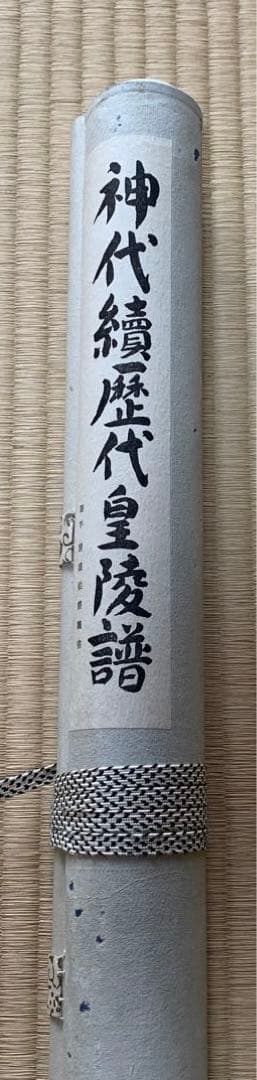 神代續歷代皇陵譜